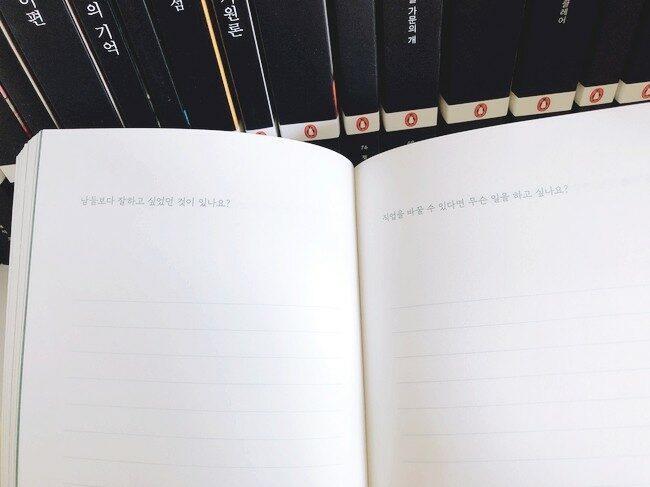 편
의 기억
섬
기원론
가문의 개
클레어
남들보다 잘하고 싶었던 것이 있나요?
직업을 바꿀 수 있다면 무슨 일을 하고 싶나요?